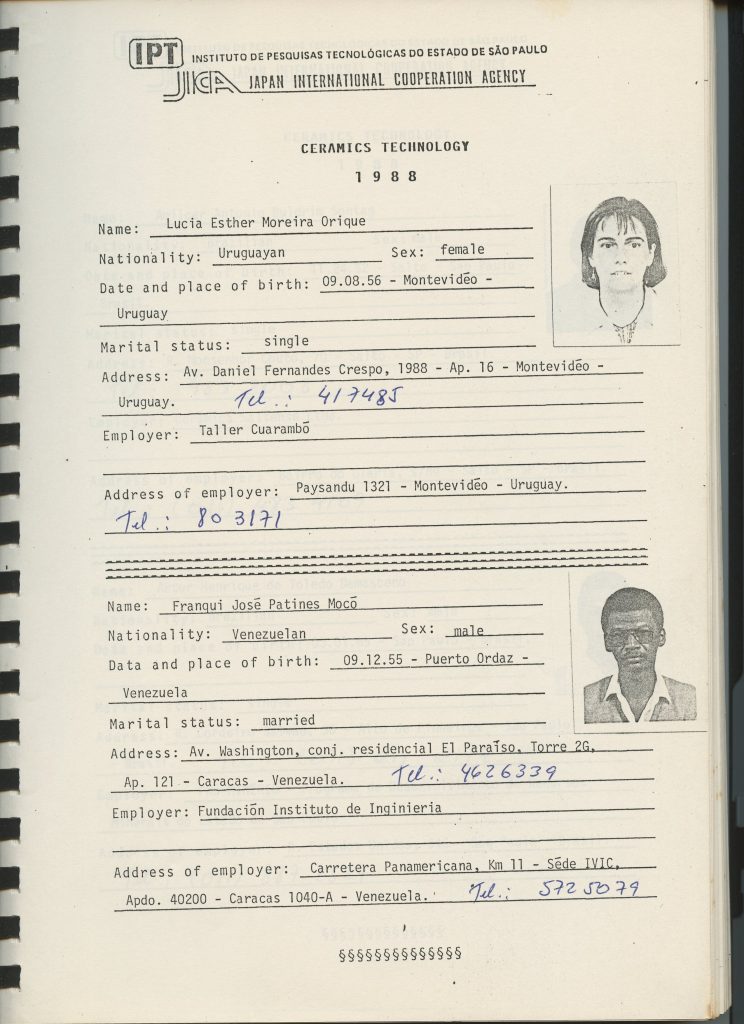 IPT INSTITUTO DE PESQUISAS TECNOLÓGICAS DO ESTADO DE SÃO PAULO
JICA JAPAN INTERNATIONAL COOPERATION AGENCY
CERAMICS TECHNOLOGY
1 9 8 8
Name: Lucia Esther Moreira Orique
Nationality: Uruguayan Sex: female
Date and place of birth: 09.08.56 - Montevidéo -
Uruguay
Marital status: single
Address: Av. Daniel Fernandes Crespo, 1988 - Ap. 16 - Montevidéo -
Uruguay. Tel.: 417485
Employer: Taller Cuarambó
Address of employer: Paysandu 1321 - Montevidéo - Uruguay.
Tel.: 803171
Name: Franqui José Patines Mocó
Nationality: Venezuelan Sex: male
Data and place of birth: 09.12.55 - Puerto Ordaz -
Venezuela
Marital status: married
Address: Av. Washington, conj. residencial El Paraíso, Torre 2G,
Ap. 121 - Caracas - Venezuela. Tel.: 4626339
Employer: Fundación Instituto de Inginieria
Address of employer: Carretera Panamericana, Km 11 - Séde IVIC,
Apdo. 40200 - Caracas 1040-A - Venezuela. Tel.: 5725079
§§§§§§§§§§§§§§